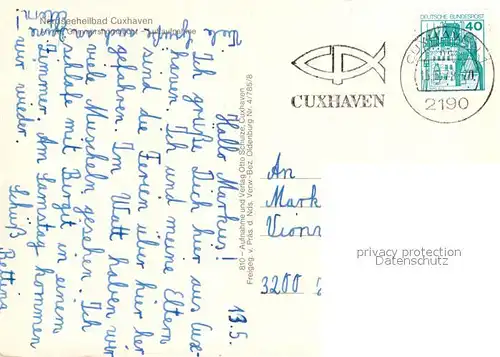 Nordseeheilbad Cuxhaven
13.5.
Hallo Markus!
Ich grüße Dich hier aus Cux-
haven. Ich und meine Eltern
sind die Ferien über hier her
gefahren. Im Watt haben wir
viele Muscheln gesehen. Ich
schlafe mit Birgit in einem
Zimmer. Am Samstag kommen
wir wieder.
Tschüß
Bettina
Viele
810 – Aufnahme und Verlag Otto Schulze, Cuxhaven
Freigeg. v. Präs. d. Nds. Verw.-Bez. Oldenburg Nr. 4/785/8
CUXHAVEN
2190
DEUTSCHE BUNDESPOST
40
An
Mark
Vionn
3200
privacy protection
Datenschutz